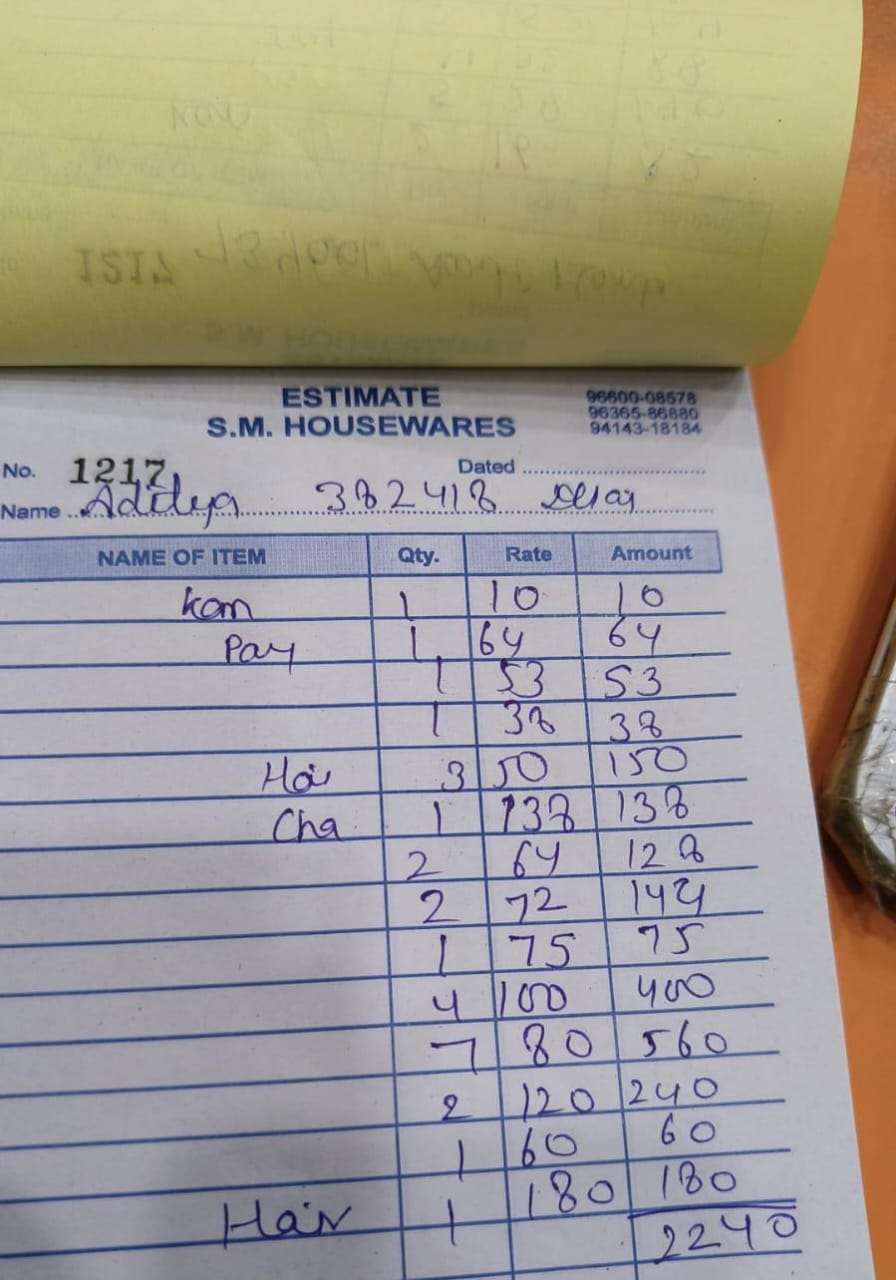 ESTIMATE
S.M. HOUSEWARES
96600-08578
96365-86880
94143-18184
No. 1217
Dated
Name Aditya 382418
NAME OF ITEM Qty. Rate Amount
Kam 1 10 10
Pay 1 64 64
1 53 53
1 38 38
Hai 3 50 150
Cha 1 138 138
2 64 128
2 72 144
1 75 75
4 100 400
7 80 560
2 120 240
1 60 60
1 180 180
Hain 1 2240